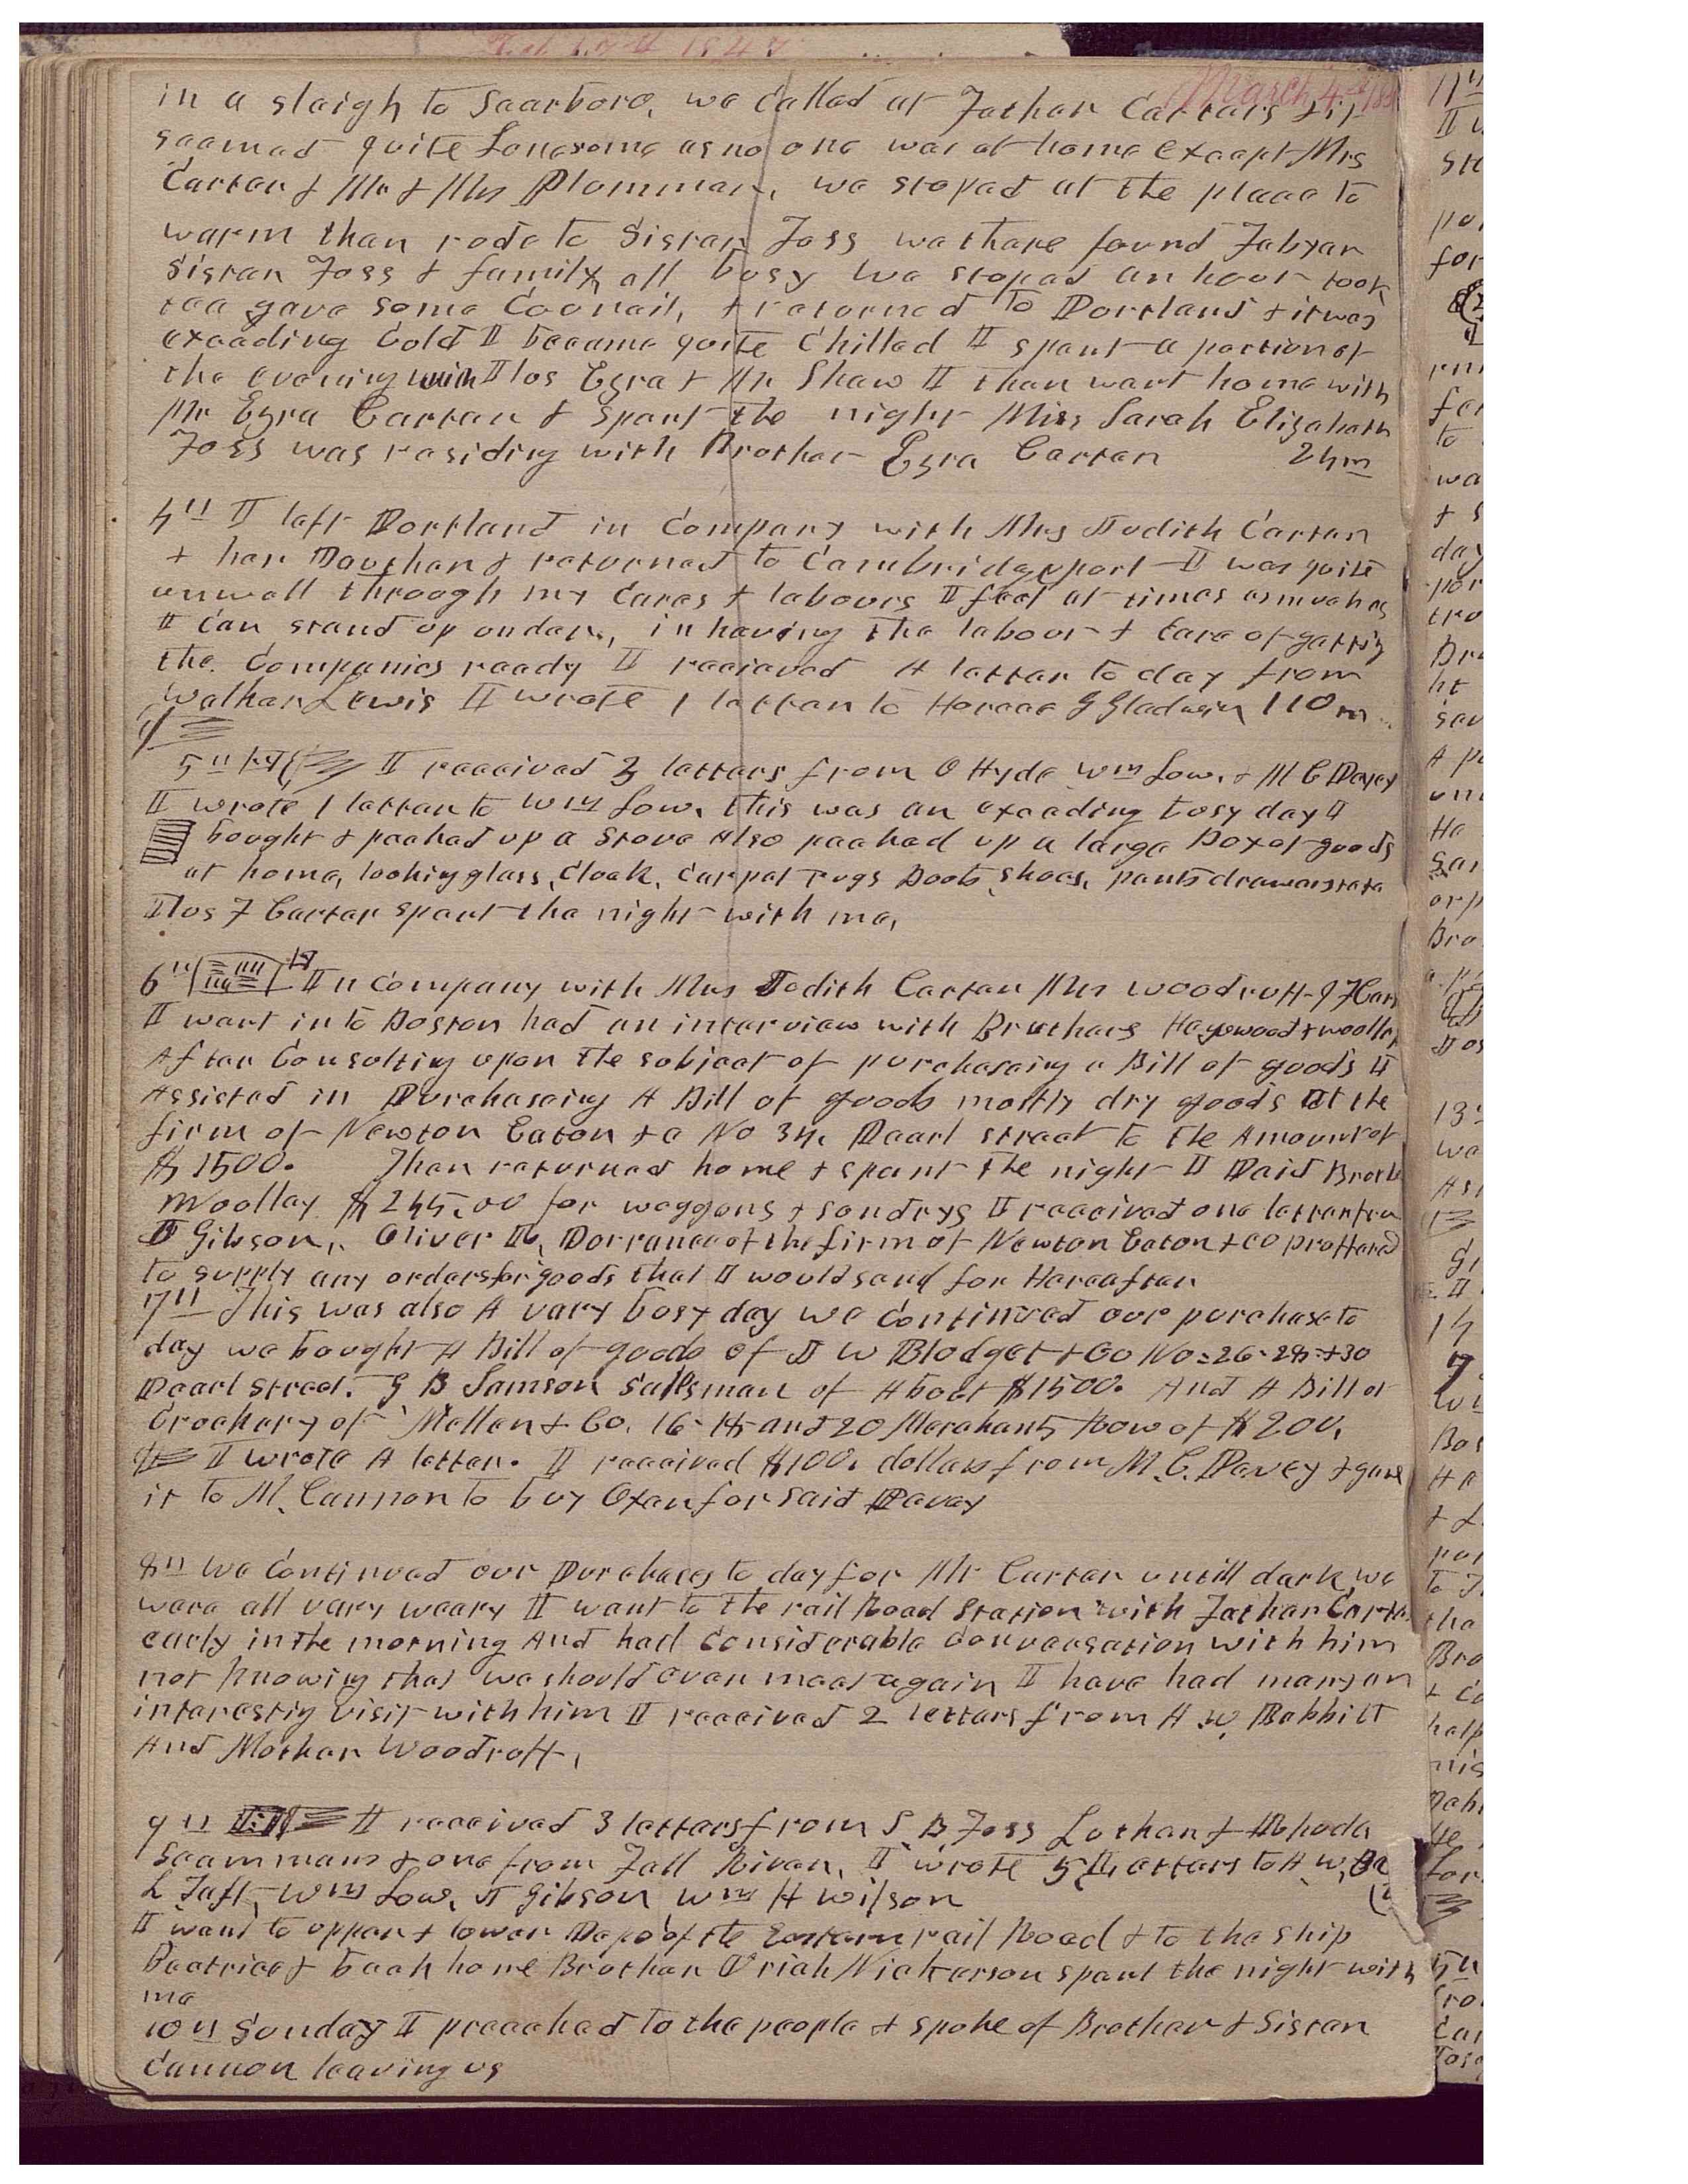 March 4th 185
in a sleigh to Scarboro, we Called at Father Carters & it
seemed quite Lonesome as no one was at home except Mrs
Carter & Mr & Mrs Plommer, we stoped at the place to
warm then rode to Sister Foss we there found Fabyan
Sister Foss & family all busy we stoped an hour took
tea gave some Councel, & returned to Portland & it was
exceding Cold I became quite Chilled I spent a portion of
the evening with Ilos Ezra & Mr Shaw I then went home with
Mr Ezra Carter & spent the night Miss Sarah Elizabeth
Foss was residing with Brother Ezra Carter 24m
4th I left Portland in Company with Mrs Judith Carter
& her Daughter & returned to Cambridgeport I was quite
unwell through my Cares & labours I feel at times as much as
I can stand up under, in having the labour & Care of getting
the Companies ready I recieved A letter to day from
Walker Lewis I wrote 1 letter to Horace G Gladwin 110 m
5th I received 3 letters from O Hyde Wm Low, & M C Davey
I wrote 1 letter to Wm Low, this was an exceding busy day I
bought & packed up a stove Also packed up a large Box of goods
at home, looking glass, Clock, Carpet rugs Boots, shoes, pants drawers &c
Ilos F Carter spent the night with me,
6th In Company with Mrs Judith Carter Mrs Woodruff & I F Carter
I went into Boston had an interview with Brothers Haywood & Woolley
After Consulting upon the subject of purchaseing a Bill of goods I
Assisted in Purchaseing A Bill of goods mostly dry goods At the
firm of Newton Eaton & Co No 34. Pearl street to the Amount of
$1500. Then returned home & spent the night I Paid Brother
Woolley $245.00 for waggons & sundrys I received one letter from
J Gibson, Oliver B, Dorrance of the firm of Newton Eaton & CO proffered
to supply any orders for goods that I would send for Hereafter
7th This was also A very busy day we Continued our purchase to
day we bought A Bill of goods of J W Blodget & Co No = 26. 28. & 30
Pearl Street. G B Samson salesman of About $1500. And A Bill of
Crockery of Mellen & Co. 16. 18 and 20 Merchants Row of $200,
I wrote A letter. I received $100. dollars from M. C. Davey & gave
it to M, Cannon to buy Oxen for said Davey
8th We Continued our Purchases to day for Mr Carter untill dark, we
were all very weary I went to the rail Road Station with Father Carter
early in the morning And had Considerable Conversation with him
not knowing that we should ever meet again I have had many an
interesting visit with him I received 2 letters from A W, Babbitt
And Mother Woodruff,
9th I received 3 letters from S. B Foss Luther & Rhoda
Scammans & one from Fall River, I wrote 5 Letters to A W, Ba
L Taft, Wm Low, J Gibson Wm H Wilson
I went to upper & lower Depo of the Eastern rail Road & to the ship
Beatrice & back home Brother Uriah Nickerson spent the night with
me
10th Sunday I preached to the people & spoke of Brother & Sister
Cannon leaving us